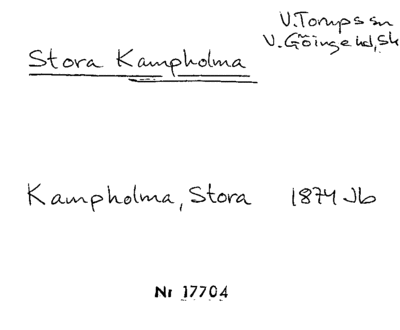 V. Torups sn
V. Göinge hd, Sk
Stora Kampholma
Kampholma, Stora 1874 Jb
Nr 17704